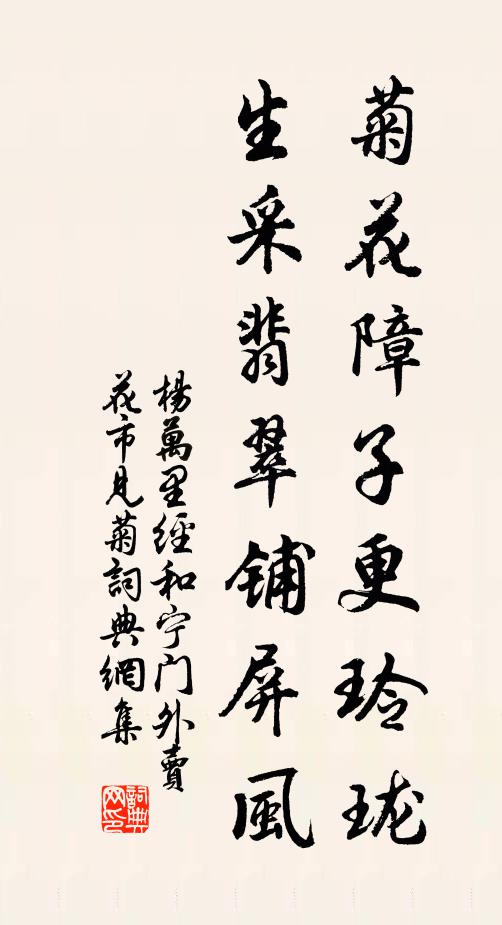 菊花障子更玲珑
生采翡翠铺屏風
楊萬里經和宁门外賣
花市見菊詞典網集
詞典网印